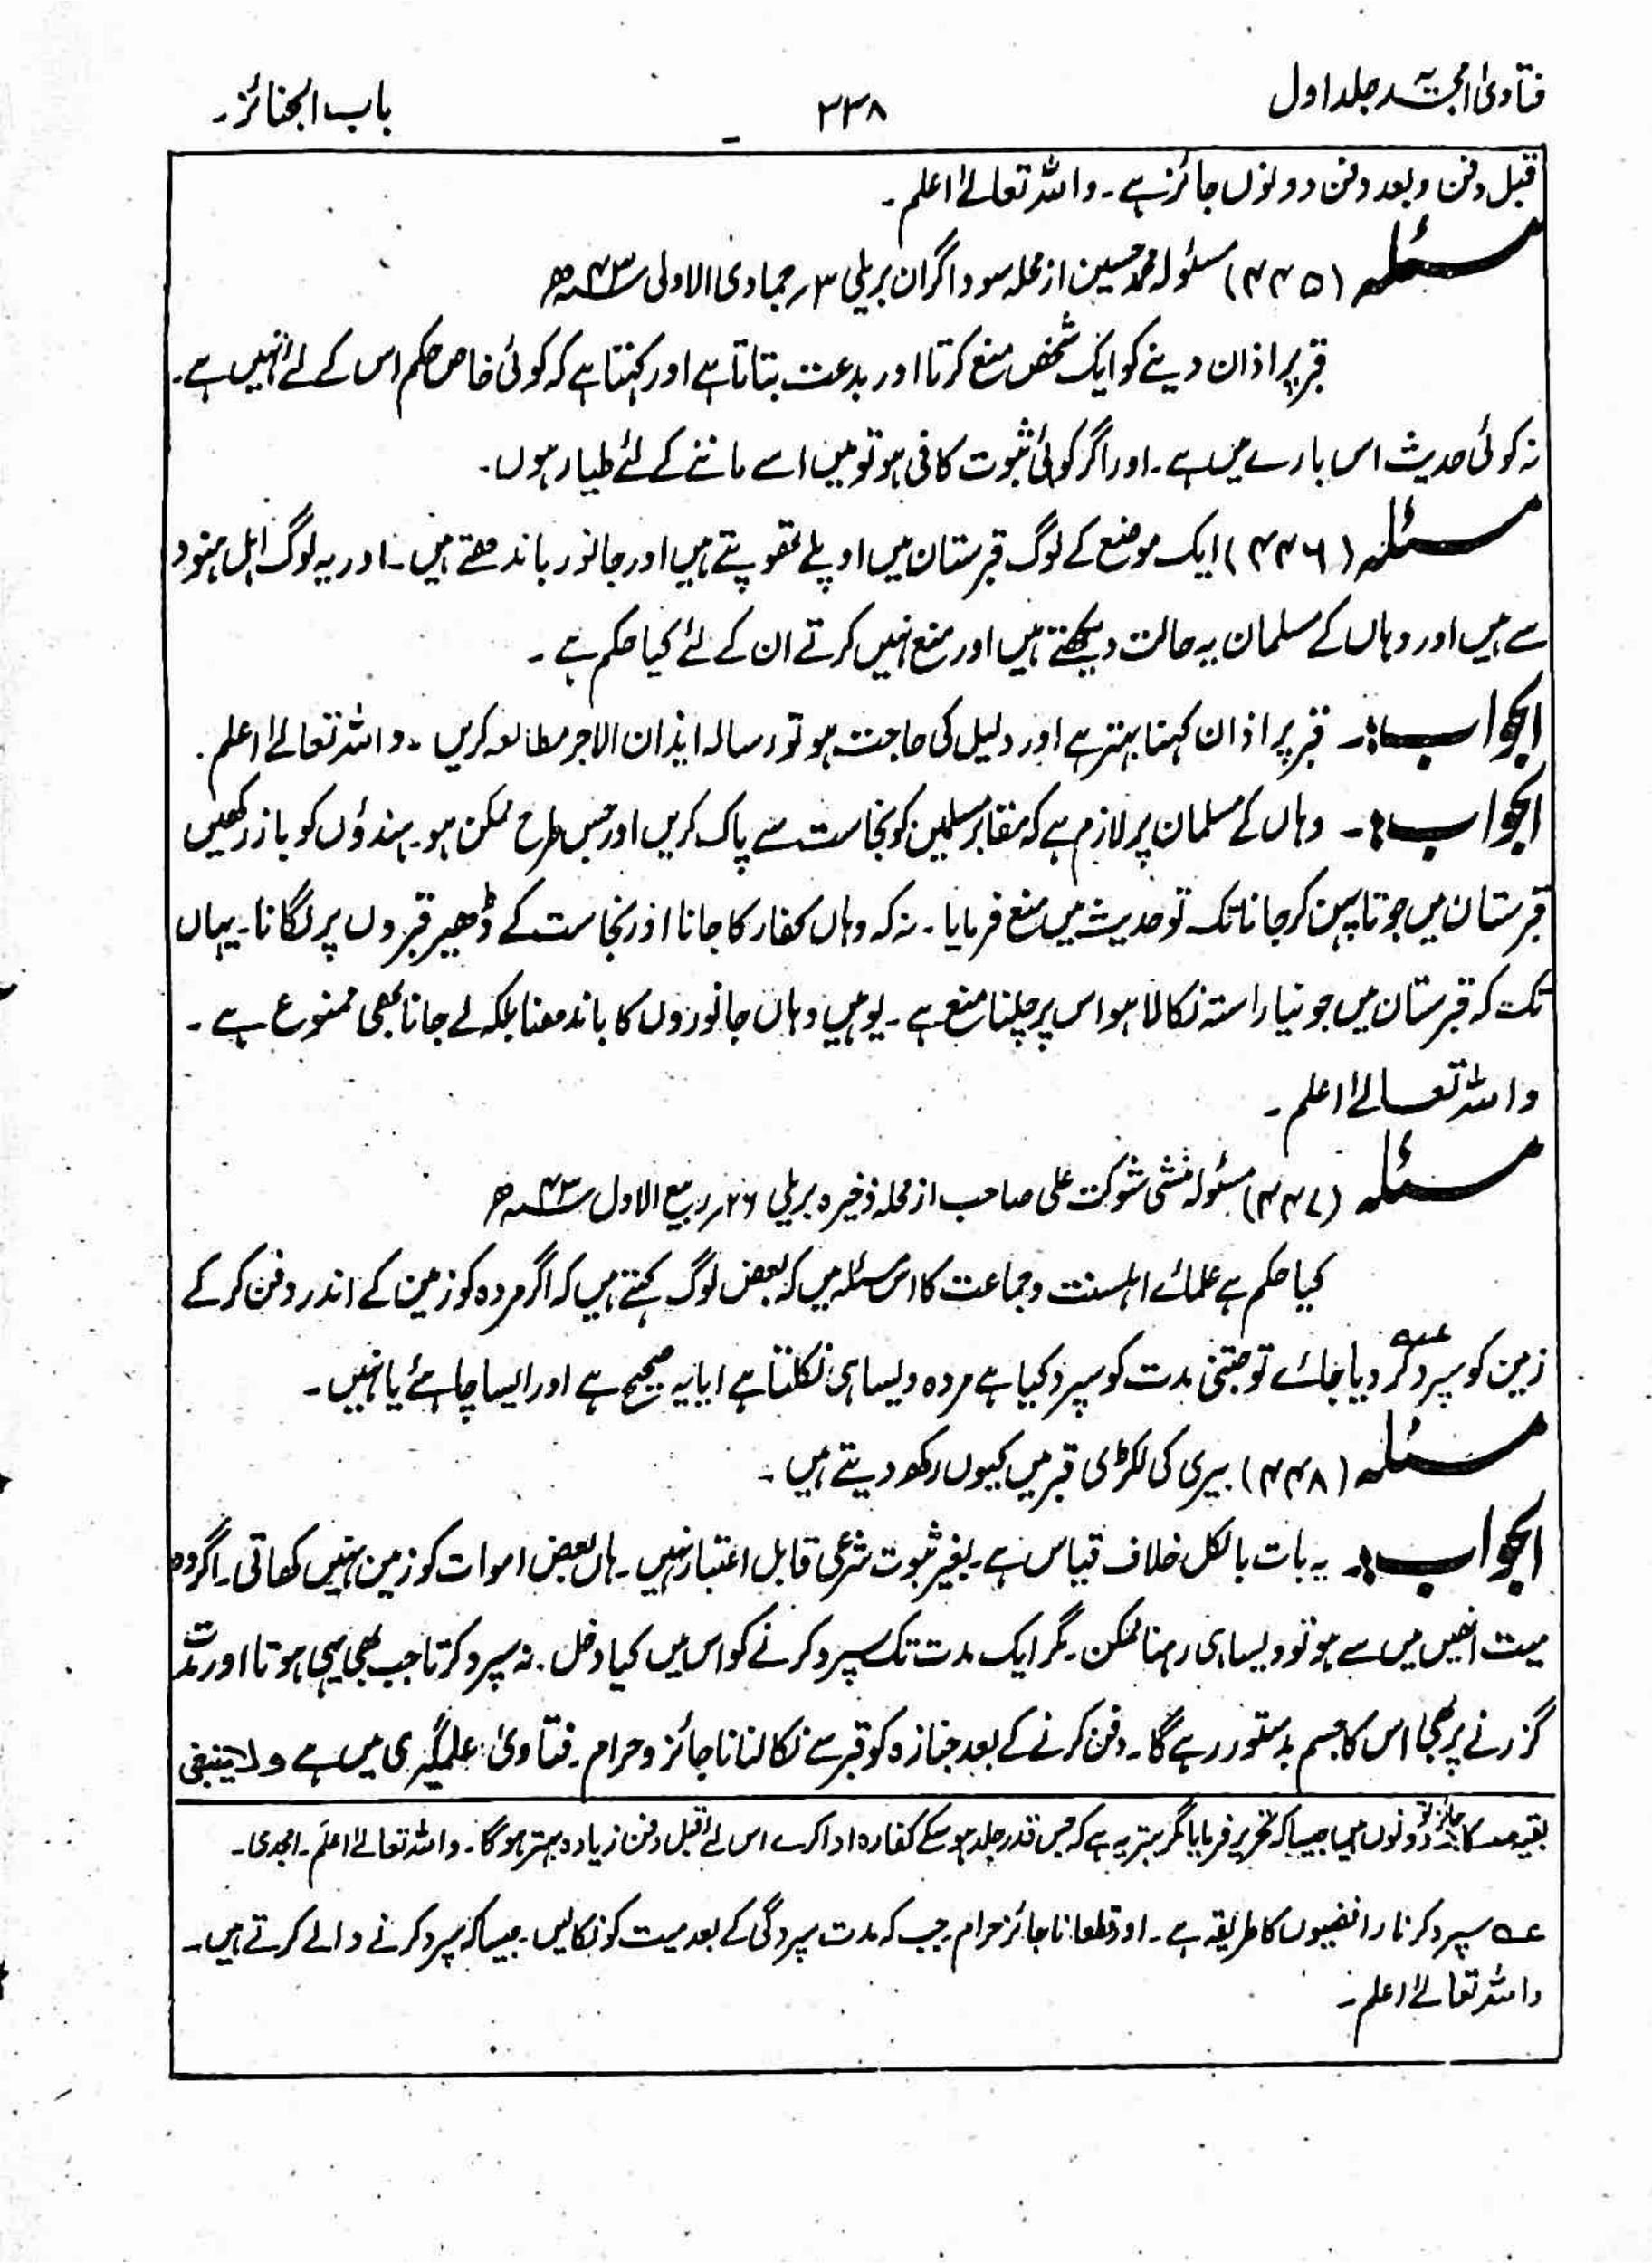 فتاویٰ امجدیہ جلد اول
۳۳۸
باب الجنائز۔
قبل دفن و بعد دفن دونوں جائز ہے۔ واللہ تعالےٰ اعلم۔
مسئلہ (۴۴۵) مسئولہ محمد حسین از محلہ سوداگران بریلی ۳؍ جمادی الاولیٰ ۴۳ھ
قبر پر اذان دینے کو ایک شخص منع کرتا اور بدعت بتاتا ہے اور کہتا ہے کہ کوئی خاص حکم اس کے لئے نہیں ہے۔
نہ کوئی حدیث اس بارے میں ہے۔ اور اگر کوئی ثبوت کافی ہو تو میں اسے ماننے کے لئے طیار ہوں۔
مسئلہ (۴۴۶) ایک موضع کے لوگ قبرستان میں اوپلے تھوپتے ہیں اور جانور باندھتے ہیں۔ اور یہ لوگ اہل ہنود
سے ہیں اور وہاں کے مسلمان یہ حالت دیکھتے ہیں اور منع نہیں کرتے ان کے لئے کیا حکم ہے۔
الجواب:۔ قبر پر اذان کہنا بہتر ہے اور دلیل کی حاجت ہو تو رسالہ ایذان الاجر مطالعہ کریں۔ واللہ تعالےٰ اعلم۔
الجواب:۔ وہاں کے مسلمان پر لازم ہے کہ مقابر مسلمین کو نجاست سے پاک کریں اور جس طرح ممکن ہو ہندؤں کو باز رکھیں
قبرستان میں جوتا پہن کر جانا تک تو حدیث میں منع فرمایا۔ نہ کہ وہاں کفار کا جانا اور نجاست کے ڈھیر قبروں پر لگانا۔ یہاں
تک کہ قبرستان میں جو نیا راستہ نکالا ہو اس پر چلنا منع ہے۔ یوہیں وہاں جانوروں کا باندھنا بلکہ لے جانا بھی ممنوع ہے۔
واللہ تعالےٰ اعلم۔
مسئلہ (۴۴۷) مسئولہ منشی شوکت علی صاحب از محلہ ذخیرہ بریلی ۲۶؍ ربیع الاول ۴۳ھ
کیا حکم ہے علمائے اہلسنت وجماعت کا اس مسئلہ میں کہ بعض لوگ کہتے ہیں کہ اگر مردہ کو زمین کے اندر دفن کر کے
زمین کو سپرد کر عہ دیا جائے تو جتنی مدت کو سپرد کیا ہے مردہ ویسا ہی نکلتا ہے ایا یہ صحیح ہے اور ایسا چاہئے یا نہیں۔
مسئلہ (۴۴۸) بیری کی لکڑی قبر میں کیوں رکھ دیتے ہیں۔
الجواب:۔ یہ بات بالکل خلاف قیاس ہے۔ بغیر ثبوت شرعی قابل اعتبار نہیں۔ ہاں بعض اموات کو زمین نہیں کھاتی۔ اگر وہ
میت انھیں میں سے ہو تو ویسا ہی رہنا ممکن۔ مگر ایک مدت تک سپرد کرنے کو اس میں کیا دخل۔ نہ سپرد کرتا جب بھی یہی ہوتا اور مدت
گزرنے پر بھی اس کا جسم بدستور رہے گا۔ دفن کرنے کے بعد جنازہ کو قبر سے نکالنا ناجائز و حرام۔ فتاویٰ علمگیری میں ہے ولا ینبغی
بقیہ صہ کا جائز تو دونوں ہیں جیسا کہ تحریر فرمایا مگر بہتر یہ ہے کہ جس قدر جلد ہو سکے کفارہ ادا کرے اس لئے قبل دفن زیادہ بہتر ہوگا۔ واللہ تعالےٰ اعلم۔ امجدی۔
عہ سپرد کرنا رافضیوں کا طریقہ ہے۔ اور قطعا ناجائز حرام جب کہ مدت سپردگی کے بعد میت کو نکالیں۔ جیسا کہ سپرد کرنے والے کرتے ہیں۔
واللہ تعالےٰ اعلم۔